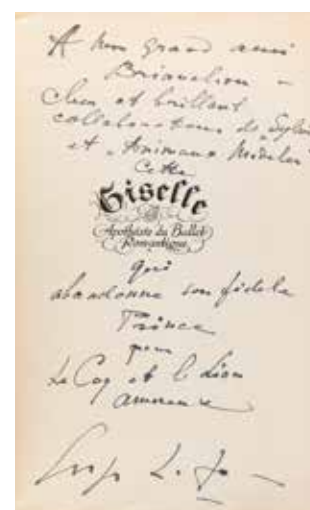 A mon grand ami
Brianchon –
cher et brillant
collaborateur de "Sylvia"
et "Animaux Modèles"
Cette
Giselle
Apothéose du Ballet
Romantique
qui
abandonne son fidèle
Prince
pour
Le Coq et le Lion
amoureux